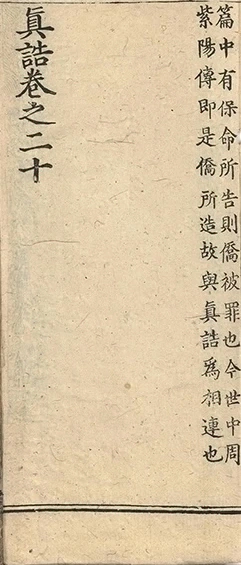 篇中有保命所告則僑被罪也今世中周
紫陽傳即是僑所造故與真誥爲相連也
真誥卷之二十